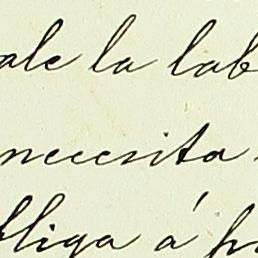 ale la lab
necesita
bliga á p